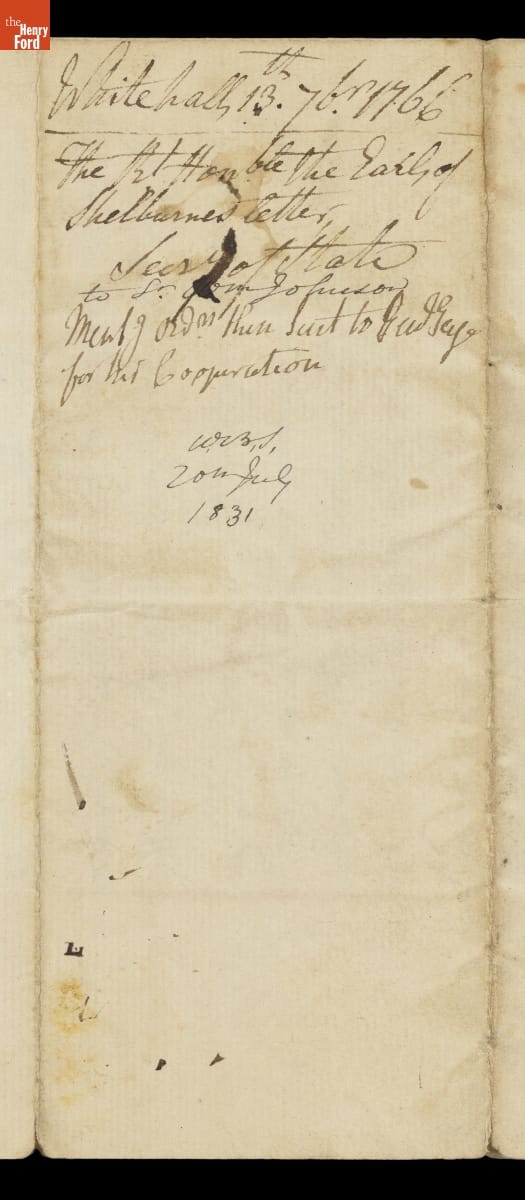 the
Henry
Ford
Whitehall, 13.th 7br. 1766
The Rt Honble the Earl of
Shelburnes letter,
Secry of State
to Sr. Wm Johnson
Mentg ordrs then sent to Genl Gage
for his Cooperation
W.B.S.
20th July
1831